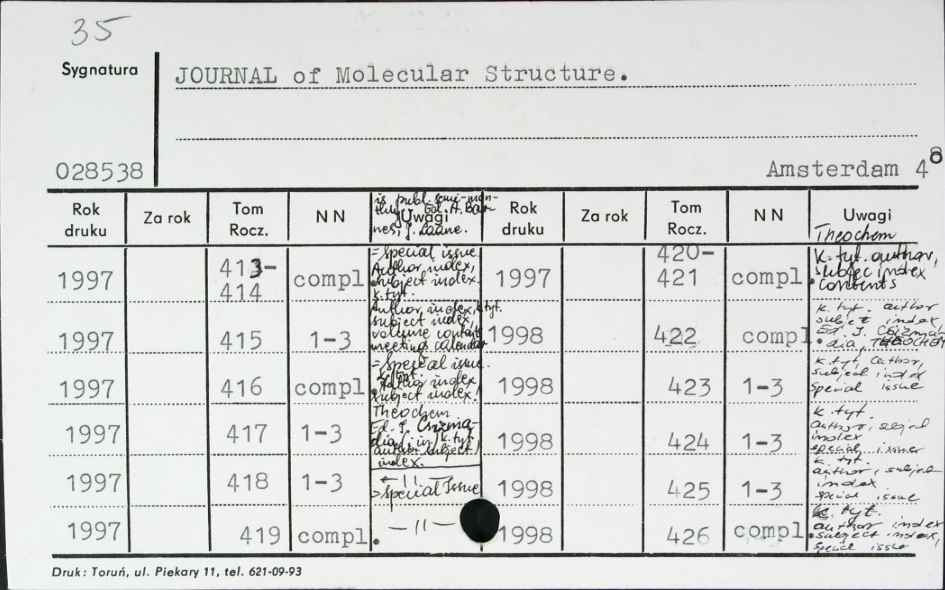 35
Sygnatura
JOURNAL of Molecular Structure.
028538
Amsterdam 4 8
is publ. semi-mon-
thly Ed. A. Bar-
nes, J. Laane.
Rok druku Za rok Tom Rocz. N N Uwagi Rok druku Za rok Tom Rocz. N N Uwagi
Theochem
1997 413-414 compl.
= special issue
Author index,
subject index.
k.tyt.
1997 420-421 compl.
k. tyt. author,
subjec index
contents
1997 415 1-3
Author, index, k.tyt.
subject index,
volume contents
meeting calendar
1998 422 compl.
k. tyt. author
subject index,
Ed. J. Csizma-
dia, THEOCHEM
1997 416 compl.
= special issue.
k. tyt.
Author index
subject index!
1998 423 1-3
k. tyt. author,
subject index
special issue
1997 417 1-3
Theochem
Ed. I. Csizma-
dia (: in) k. tyt.
author subject)
index.
1998 424 1-3
k. tyt.
author,
index
special issue
1997 418 1-3
— 11 —
= special Issue
1998 425 1-3
k. tyt.
author, subject
index
special issue
1997 419 compl.
— 11 —
1998 426 compl.
k. tyt.
author index
subject index,
special issue
Druk: Toruń, ul. Piekary 11, tel. 621-09-93